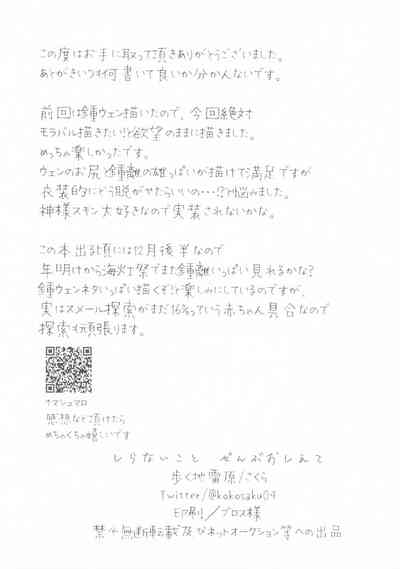 この度はお手に取って頂きありがとうございました。
あとがきいつも何書いて良いか分かんないです。
前回は鍾ウェン描いたので、今回絶対
モラバル描きたい!と欲望のままに描きました。
めっちゃ楽しかったです。
ウェンのお尻と鍾離の雄っぱいが描けて満足ですが
衣装的にどう脱がせたらいいの…!?と悩みました。
神様スキン大好きなので実装されないかな。
この本出る頃には12月後半なので
年明けから海灯祭でまた鍾離いっぱい見れるかな?
鍾ウェンネタいっぱい描くぞ!と楽しみにしているのですが、
実はスメール探索がまだ16%っていう赤ちゃん具合なので
探索も頑張ります。
↑マシュマロ
感想など頂けたら
めちゃくちゃ嬉しいです
しらないこと ぜんぶおしえて
歩く地雷原/さくら
Twitter/@kokosaku04
EP刷/ブロス様
禁・無断転載及びネットオークション等への出品